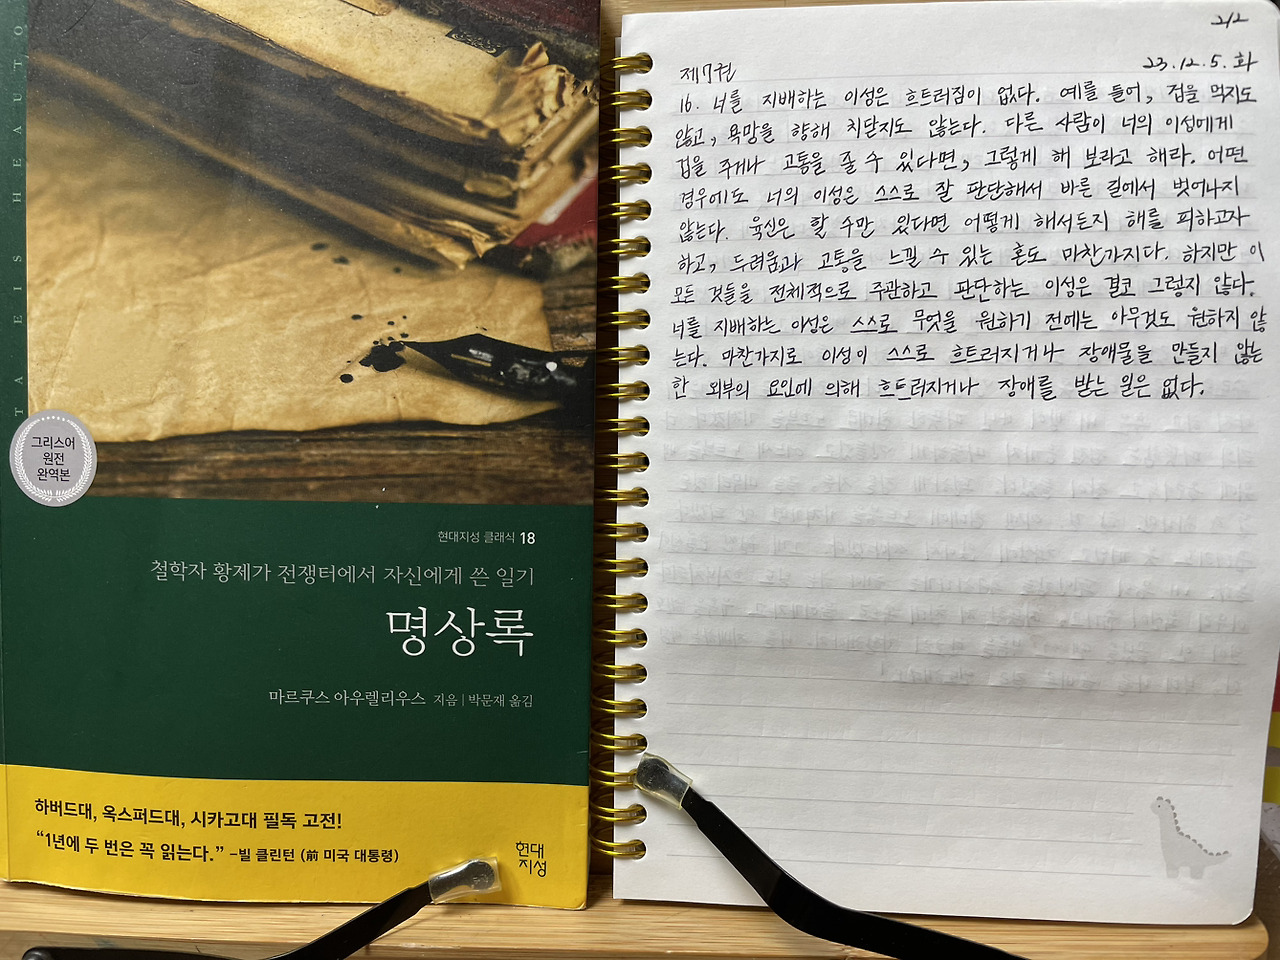 T A E I S H E A U T O
그리스어
원전
완역본
현대지성 클래식 18
철학자 황제가 전쟁터에서 자신에게 쓴 일기
명상록
마르쿠스 아우렐리우스 지음 | 박문재 옮김
하버드대, 옥스퍼드대, 시카고대 필독 고전!
“1년에 두 번은 꼭 읽는다.” –빌 클린턴 (前 미국 대통령)
현대
지성
2/2
23.12.5.화
제7권
16. 너를 지배하는 이성은 흐트러짐이 없다. 예를 들어, 겁을 먹지도
않고, 욕망을 향해 치닫지도 않는다. 다른 사람이 너의 이성에게
겁을 주거나 고통을 줄 수 있다면, 그렇게 해 보라고 해라. 어떤
경우에도 너의 이성은 스스로 잘 판단해서 바른 길에서 벗어나지
않는다. 육신은 할 수만 있다면 어떻게 해서든지 해를 피하고자
하고, 두려움과 고통을 느낄 수 있는 혼도 마찬가지다. 하지만 이
모든 것들을 전체적으로 주관하고 판단하는 이성은 결코 그렇지 않다.
너를 지배하는 이성은 스스로 무엇을 원하기 전에는 아무것도 원하지 않
는다. 마찬가지로 이성이 스스로 흐트러지거나 장애물을 만들지 않는
한 외부의 요인에 의해 흐트러지거나 장애를 받는 일은 없다.